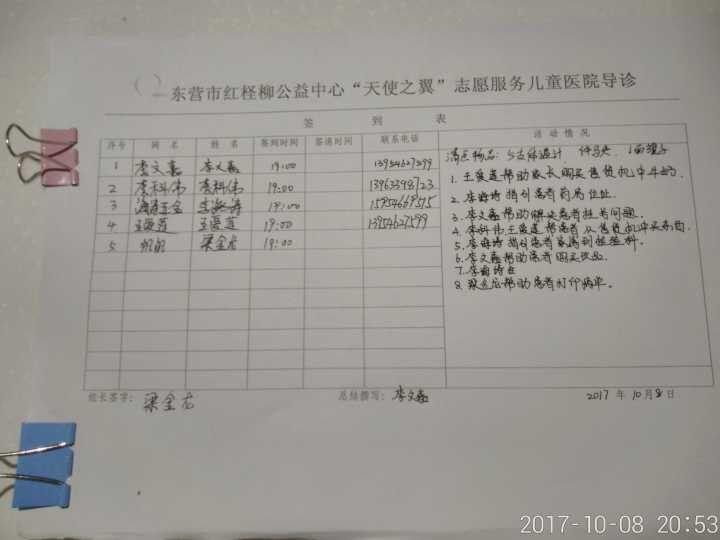 东营市红柽柳公益中心“天使之翼”志愿服务儿童医院导诊
签 到 表
序号 网名 姓名 签到时间 签退时间 联系电话 活动情况
1 李文嘉 李文嘉 19:00 13954627599
2 李科伟 李科伟 19:00 13963398723
3 19:00
4 王爱莲 王爱莲 19:00 13954627599
5 帆帆 梁金龙 19:00
清点物品: 5支体温计
1. 王爱莲帮助家长购买售货机中牛奶.
2. 李海涛指引患者药房位置.
3. 李文嘉帮助解决患者挂号问题.
4. 李科伟王爱莲帮患者从售货机中买东西.
5. 李海涛指引患者家属到检验科.
6. 李文嘉帮助患者购买饮品.
7. 李海涛
8. 梁金龙帮助患者打印病单.
组长签字: 梁金龙 总结撰写: 李文嘉 2017 年 10 月 8 日
2017-10-08 20:53